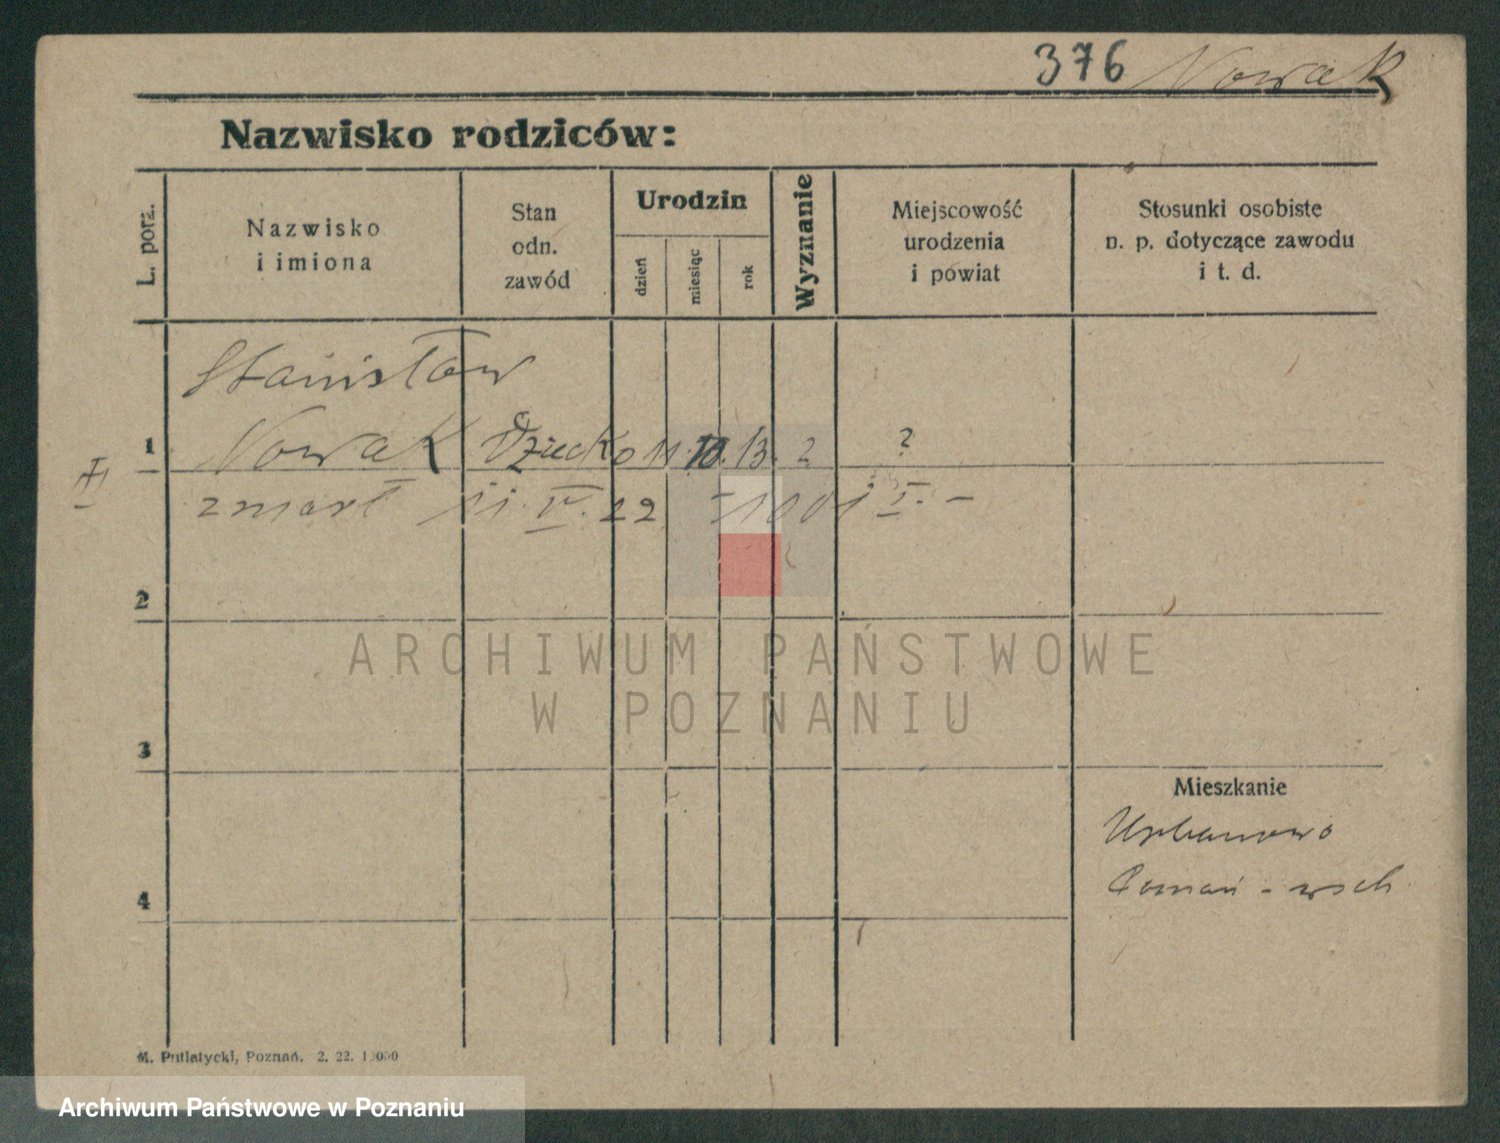 376 Nowak
Nazwisko rodziców:
L. porz.
Nazwisko
i imiona
Stan
odn.
zawód
Urodzin
dzień
miesiąc
rok
Wyznanie
Miejscowość
urodzenia
i powiat
Stosunki osobiste
n. p. dotyczące zawodu
i t. d.
Stanisław
1 Nowak Dziecko 11. 10. 13. ?
zmarł 11. V. 22
2
3
4
Mieszkanie
Urbanowo
Poznań - wsch
M. Putiatycki, Poznań. 2. 22.
ARCHIWUM PAŃSTWOWE
W POZNANIU
Archiwum Państwowe w Poznaniu